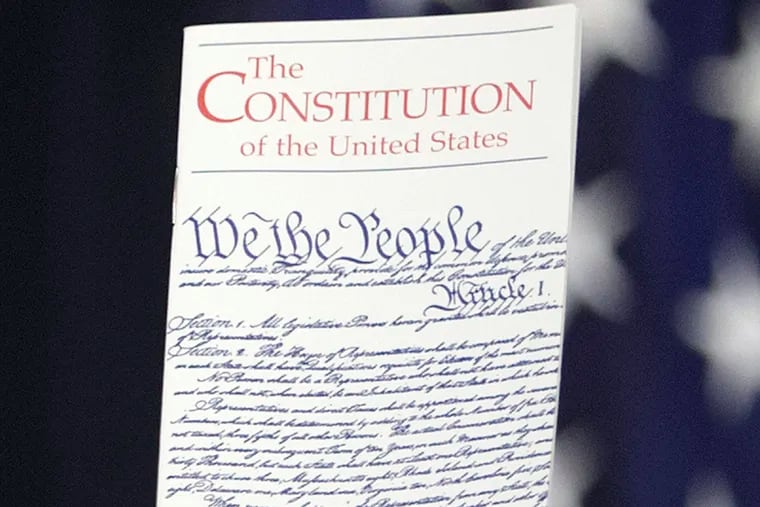 The
CONSTITUTION
of the United States
We the People of the Unit
insure domestic Tranquility, provide for the common defence, promo
and our Posterity, do ordain and establish this Constitution for the U
Article I.
Section 1. All legislative Powers herein granted shall be vested in
of Representatives.
Section 2. The House of Representatives shall be composed of Mem
in each State shall have the Qualifications requisite for Electors of the most numerou
No Person shall be a Representative who shall not have attained to
and who shall not, when elected, be an Inhabitant of that State in which he sha
Representatives and direct Taxes shall be apportioned among the
Numbers, which shall be determined by adding to the whole Number of free
not taxed, three fifths of all other Persons. The actual Enumeration shall
and within every subsequent Term of ten Years, in such Manner as
thirty Thousand, but each State shall have at Least one Representative; and
entitled to chuse three, Massachusetts eight, Rhode Island and Providence
eight, Delaware one, Maryland six, Virginia ten, North Carolina five,
When Representation from any State, the